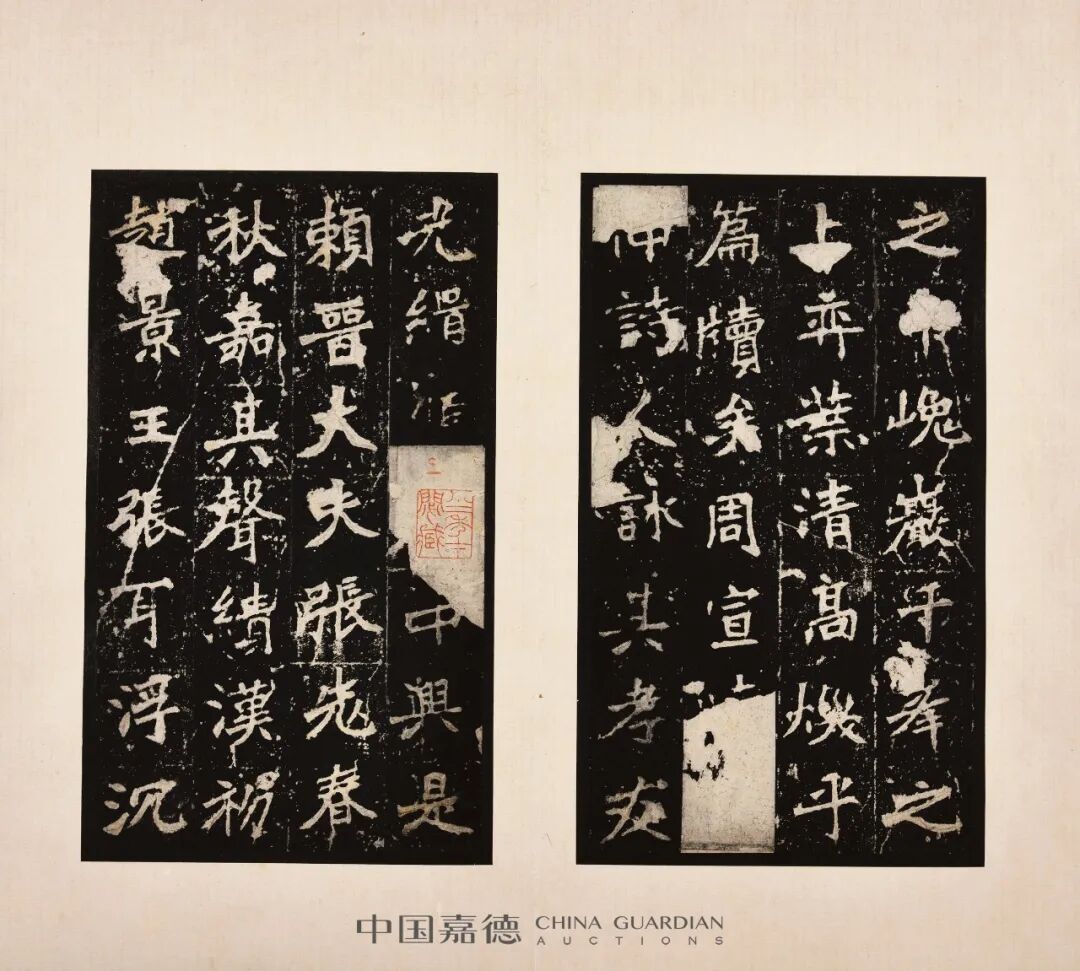 之下嵬巖乎峯之
上弈葉清高煥乎
篇牘矣周宣時
仲詩人詠其孝友
光緝中興是
賴晉大夫張老春
秋嘉其聲績漢初
趙景王張耳浮沉
中国嘉德 CHINA GUARDIAN
AUCTIONS